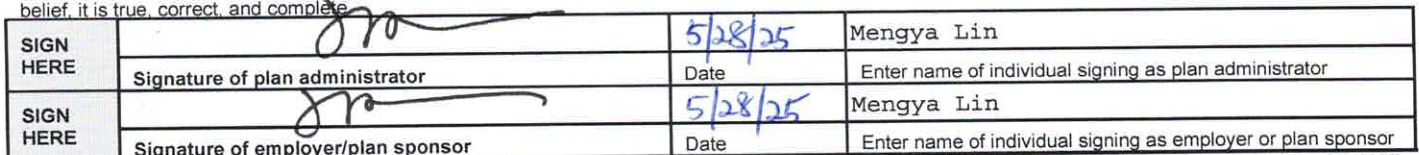 belief, it is true, correct, and complete
SIGN HERE
5/28/25
Mengya Lin
Signature of plan administrator
Date
Enter name of individual signing as plan administrator
SIGN HERE
5/28/25
Mengya Lin
Signature of employer/plan sponsor
Date
Enter name of individual signing as employer or plan sponsor